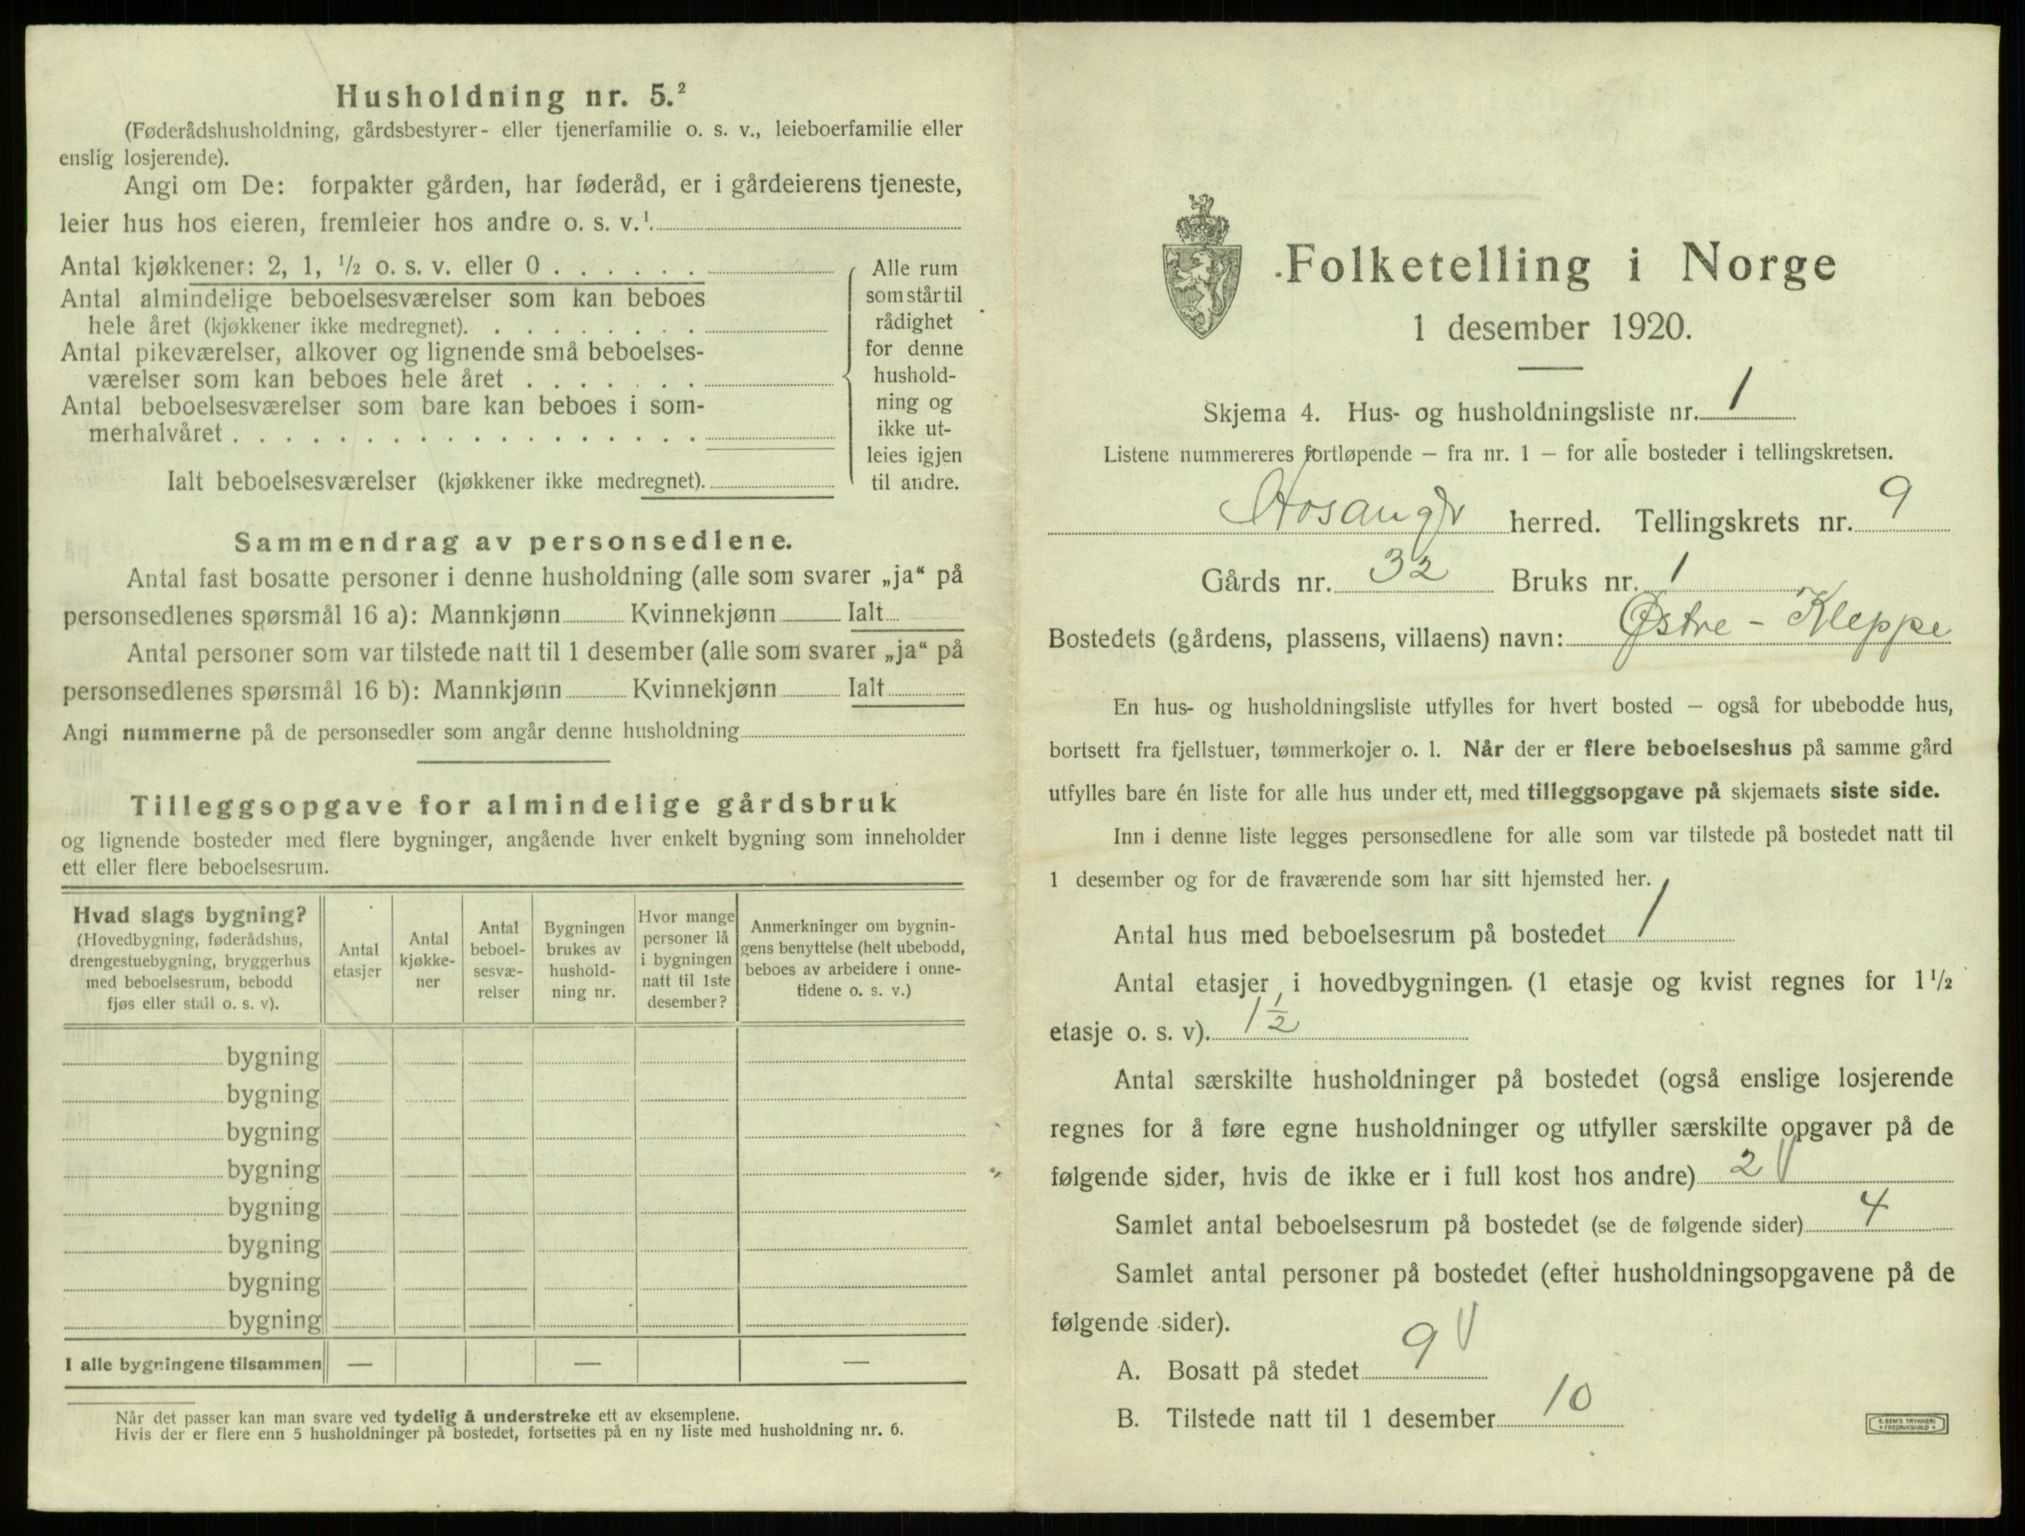 Husholdning nr. 5.²
(Føderådshusholdning, gårdsbestyrer- eller tjenerfamilie o. s. v., leieboerfamilie eller
enslig losjerende).
Angi om De: forpakter gården, har føderåd, er i gårdeierens tjeneste,
leier hus hos eieren, fremleier hos andre o. s. v.¹
Antal kjøkkener: 2, 1, ½ o. s. v. eller 0
Antal almindelige beboelsesværelser som kan beboes
hele året (kjøkkener ikke medregnet).
Antal pikeværelser, alkover og lignende små beboelses-
værelser som kan beboes hele året
Antal beboelsesværelser som bare kan beboes i som-
merhalvåret
Ialt beboelsesværelser (kjøkkener ikke medregnet).
Alle rum
som står til
rådighet
for denne
hushold-
ning og
ikke ut-
leies igjen
til andre.
Sammendrag av personsedlene.
Antal fast bosatte personer i denne husholdning (alle som svarer „ja“ på
personsedlenes spørsmål 16 a): Mannkjønn Kvinnekjønn Ialt
Antal personer som var tilstede natt til 1 desember (alle som svarer „ja“ på
personsedlenes spørsmål 16 b): Mannkjønn Kvinnekjønn Ialt
Angi nummerne på de personsedler som angår denne husholdning
Tilleggsopgave for almindelige gårdsbruk
og lignende bosteder med flere bygninger, angående hver enkelt bygning som inneholder
ett eller flere beboelsesrum.
Hvad slags bygning?
(Hovedbygning, føderådshus,
drengestuebygning, bryggerhus
med beboelsesrum, bebodd
fjøs eller stall o. s. v).
Antal
etasjer
Antal
kjøkke-
ner
Antal
beboel-
sesvæ-
relser
Bygningen
brukes av
hushold-
ning nr.
Hvor mange
personer lå
i bygningen
natt til 1ste
desember?
Anmerkninger om bygnin-
gens benyttelse (helt ubebodd,
beboes av arbeidere i onne-
tidene o. s. v.)
bygning
bygning
bygning
bygning
bygning
bygning
bygning
bygning
I alle bygningene tilsammen — — —
Når det passer kan man svare ved tydelig å understreke ett av eksemplene.
Hvis der er flere enn 5 husholdninger på bostedet, fortsettes på en ny liste med husholdning nr. 6.
Folketelling i Norge
1 desember 1920.
Skjema 4. Hus- og husholdningsliste nr. 1
Listene nummereres fortløpende – fra nr. 1 – for alle bosteder i tellingskretsen.
Hosanger herred. Tellingskrets nr. 9
Gårds nr. 32 Bruks nr. 1
Bostedets (gårdens, plassens, villaens) navn: Østre - Kleppe
En hus- og husholdningsliste utfylles for hvert bosted – også for ubebodde hus,
bortsett fra fjellstuer, tømmerkojer o. l. Når der er flere beboelseshus på samme gård
utfylles bare én liste for alle hus under ett, med tilleggsopgave på skjemaets siste side.
Inn i denne liste legges personsedlene for alle som var tilstede på bostedet natt til
1 desember og for de fraværende som har sitt hjemsted her.
Antal hus med beboelsesrum på bostedet 1
Antal etasjer i hovedbygningen (1 etasje og kvist regnes for 1½
etasje o. s. v). 1½
Antal særskilte husholdninger på bostedet (også enslige losjerende
regnes for å føre egne husholdninger og utfyller særskilte opgaver på de
følgende sider, hvis de ikke er i full kost hos andre) 2 V
Samlet antal beboelsesrum på bostedet (se de følgende sider) 4
Samlet antal personer på bostedet (efter husholdningsopgavene på de
følgende sider).
A. Bosatt på stedet 9 V
B. Tilstede natt til 1 desember 10
E. SEM'S TRYKKERI
FREDRIKSHALD